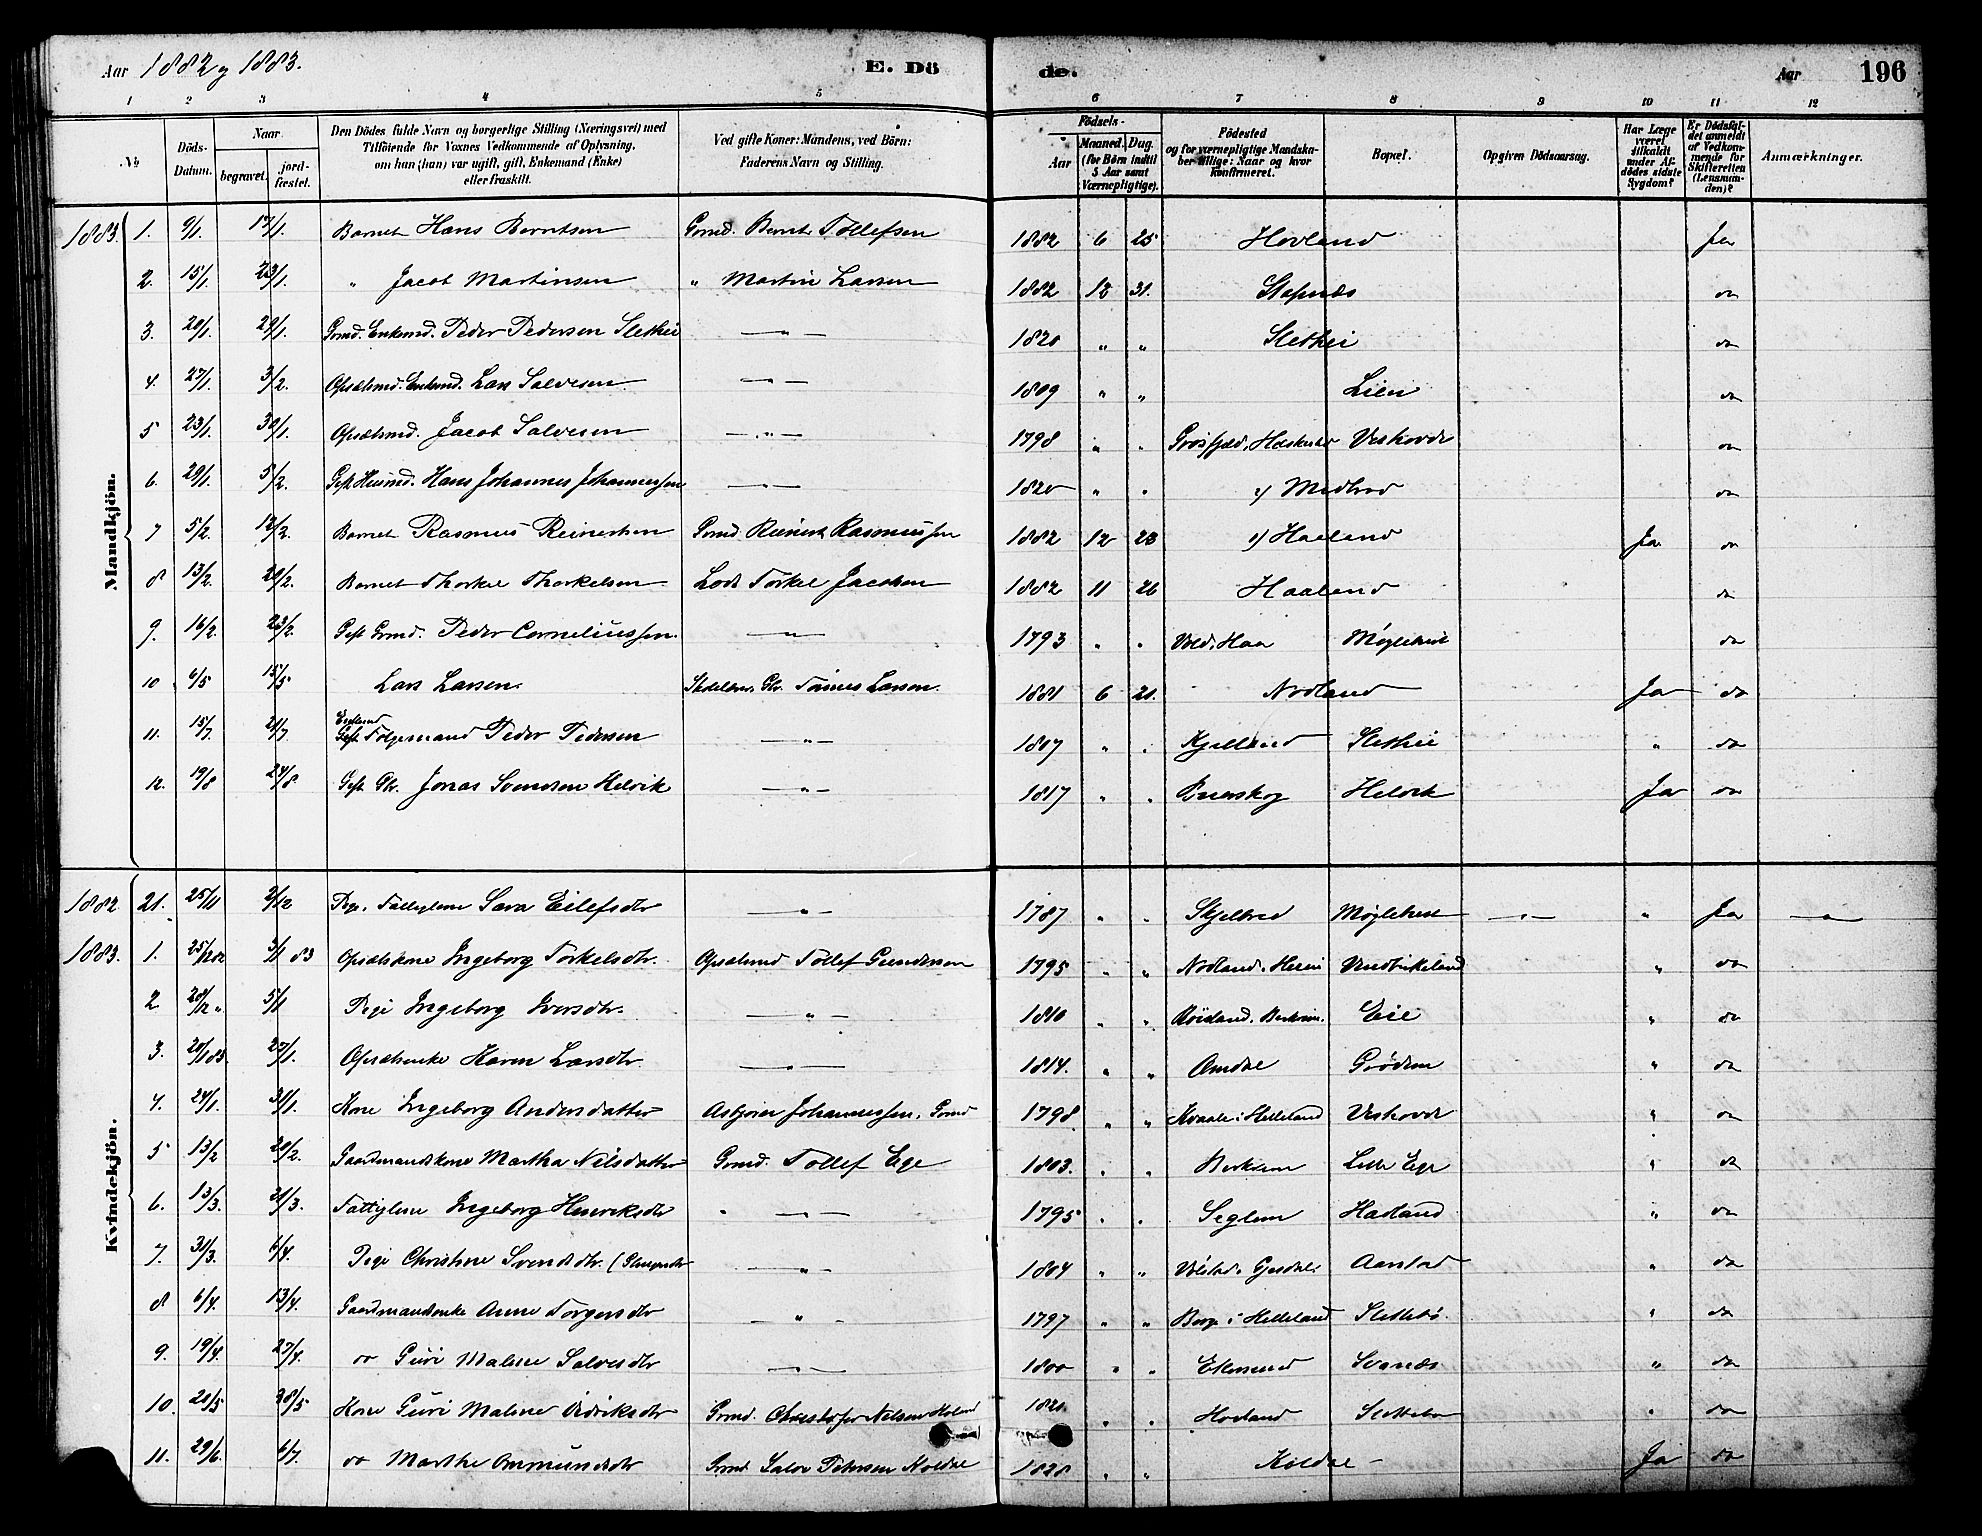 Aar 1882 og 1883. E. Dö de. Aar 196
1 2 3 4 5 6 7 8 9 10 11 12
No Döds-Datum. Naar begravet. jordfæstet. Den Dödes fulde Navn og borgerlige Stilling (Næringsvei) med Tilföiende for Voxnes Vedkommende af Oplysning, om han (hun) var ugift, gift, Enkemand (Enke) eller fraskilt. Ved gifte Koner: Mandens, ved Börn: Faderens Navn og Stilling. Födsels- Aar Maaned. Dag. (for Børn indtil 5 Aar samt Værnepligtige). Födested og for værnepligtige Mandskaber tillige: Naar og hvor konfirmeret. Bopæl. Opgiven Dødsaarsag. Har Læge været tilkaldt under Afdödes sidste Sygdom? Er Dødsfaldet anmeldt af Vedkommende for Skifteretten (Lensmanden)? Anmærkninger.
Mandkjön.
1883. 1. 9/1. 17/1. Barnet Hans Berntsen Grmd. Bernt Tollefsen 1882 6 25 Hovland Ja
2. 15/1. 23/1. " Jacob Martinsen " Martin Larsen 1882 12 31. Stapnæs do
3. 20/1. 29/1. Grmd. Enkemd. Peder Pedersen Slethei — " — 1820 " " Slethei do
4. 27/1. 3/2. Opsidsmd. Enkemd. Lars Salvesen — " — 1809 " " Lien do
5 23/1. 30/1. Jacob Salvesen — " — 1798 " " Grøsfjeld, Heskestad do
6. 29/1. 5/2. Gift Husmd. Hans Johannes Johannessen — " — 1820 " " do
7 5/2. 12/2. Barnet Rasmus Reinertsen Grmd Reinert Rasmussen 1882 12 23 Haaland Ja do
8 13/2. 20/2. Barnet Thorkel Thorkelsen Lods Torkel Jacobsen 1882 11 26 Haaland do
9. 16/2. 23/2. Gift Grmd. Peder Corneliussen — " — 1793 " " Haa Møglehuse do
10 6/5 15/5 Lars Larsen. Tønnes Larsen. 1881 6 20. Nodland Ja do
11. 15/7 21/7 Gift Følgemand Peder Pedersen — " — 1807 " " Kjelland Slethei " do
12. 19/8 24/8 Gift Jonas Svendsen Helvik — " — 1817 " " Buerskog Helvik Ja do
Kvindekjön.
1882 21. 25/11 2/12 Pige, Fattiglem Sara Eilefsdtr — " — 1787 " " Skjelbred Møglehuse — " — " Ja — " —
1883. 1. 25/12 82 3/1 83 Ingeborg Torkelsdtr. Tollef Gundersen 1795 " " Nodland do
2. 28/12 " 5/1 Pige Ingeborg Iversdtr. — " — 1810 " " Eie " do
3. 20/1 83. 27/1. Karen Larsdtr — " — 1814. " " Amdal Grødem " do
4. 24/1. 31/1. Kone Ingeborg Andersdatter Asbjørn Johannessen, Grmd 1798 " " Kvaale i Helleland " do
5 13/2 20/2. Gaardmandskone Martha Nilsdatter Grmd. Tollef Ege 1803. " " Berkrem Lille Ege " do
6. 13/3. 21/3. Fattiglem Ingeborg Henriksdtr — " — 1795 " " Seglem Haaland " do
7. 31/3. 6/4. Pige Christine Svendsdtr. — " — 1804 " " Gjesdal Aarstad " do
8 6/4 13/4. Gaardmandsenke Anne Torgersdtr — " — 1797 " " Berge i Helleland Slettebø. " do
9. 19/4. 27/4. do Guri Maline Salvesdtr — " — 1800 " " Ekersund Svanæs " do
10. 20/5 28/5 Kone Guri Maline Didriksdtr Grmd. Christofer Nilsen 1820 " " Hovland Slettebø " do
11. 29/6. 6/7. do Marthe Ommundsdtr Grmd Salve Petersen Koldal 1828 " " Koldal — Ja do